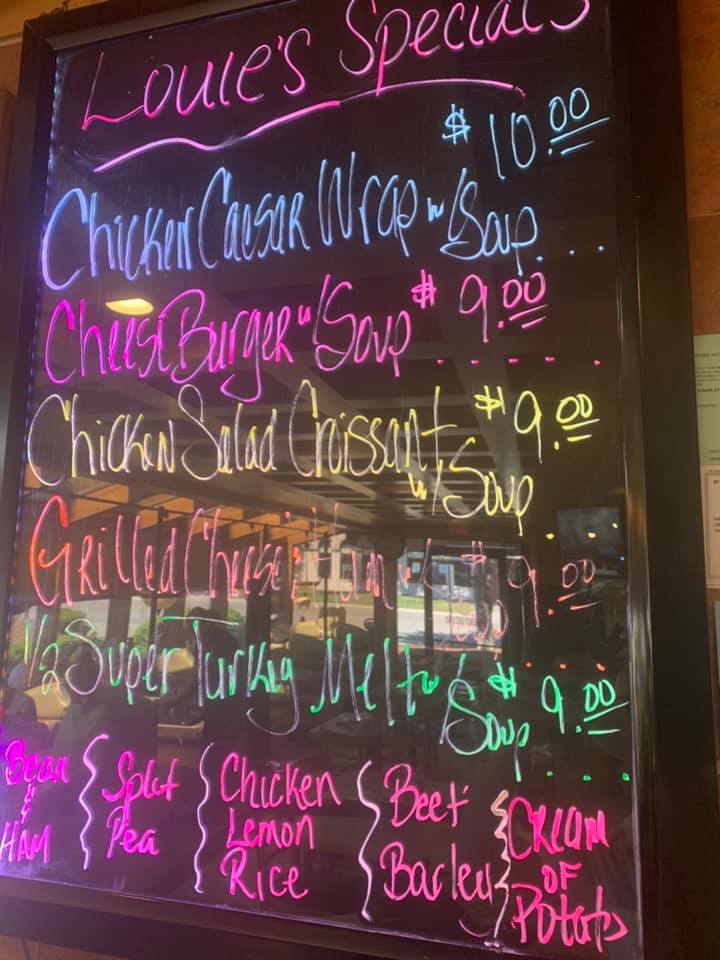 Louie's Specials
$10.00
Chicken Caesar Wrap w/Soup....
CheeseBurger w/Soup $9.00
Chicken Salad Croissant $9.00
w/Soup
Grilled Cheese & Ham w/ $9.00
Soup
1/2 Super Turkey Melt w/ $9.00
Soup
Bean & HAM
Split Pea
Chicken Lemon Rice
Beef Barley
CREAM OF Potato